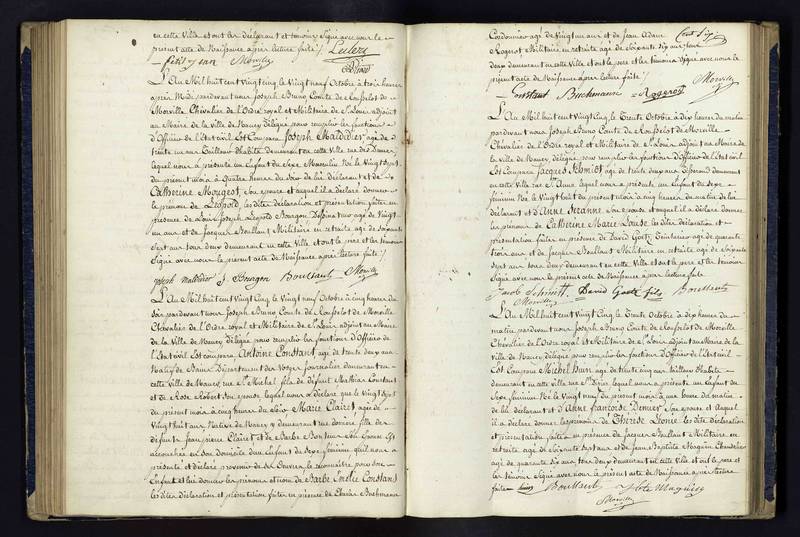 en cette Ville et ont les déclarant et témoins signé avec nous le
présent acte de Naissance après lecture faite
Leclerc
Morville
L'An Mil huit cent Vingt cinq le Vingt neuf Octobre à trois heures
après Midi pardevant nous Joseph Bruno Comte de Rousselot de
Morville Chevalier de l'Ordre royal et Militaire de St Louis adjoint
au Maire de la Ville de Nancy délégué pour remplir les fonctions
d'Officier de l'état civil Est Comparu Joseph Maldidier âgé de
trente un ans Tailleur d'habits demeurant en cette Ville rue des Dames
lequel nous a présenté un Enfant du Sexe Masculin Né le Vingt Sept
du présent mois à Quatre heures du soir de lui déclarant et de
Catherine Mougest son épouse et auquel il a déclaré donner
le prénom de Léopold, les dites déclaration et présentation faites en
présence de Louis Joseph Léopold Bourgon âgé de Vingt
un ans et de Jacques Boullaut Militaire en retraite âgé de soixante
Sept ans tous deux demeurant en cette Ville et ont le père et les témoins
Signé avec nous le présent acte de Naissance après lecture faite
joseph maldidier J Bourgon Boullaut Morville
L'An Mil huit cent Vingt Cinq le Vingt neuf Octobre à cinq heures du
soir pardevant nous Joseph Bruno Comte de Rousselot de Morville
Chevalier de l'Ordre royal et Militaire de St Louis adjoint au Maire
de la Ville de Nancy délégué pour remplir les fonctions d'Officier de
l'état civil Est comparu Antoine Constant âgé de trente deux ans
Natif de Bains Département des Vosges Journalier demeurant en
cette Ville de Nancy rue St Michel fils de défunt Mathias Constant
et de Rose Robert son épouse, lequel nous a déclaré que le Vingt Sept
du présent mois à cinq heures du soir Marie Clairet âgée de
Vingt huit ans Native de Nancy y demeurant rue fille de
défunts Jean pierre Clairet et de Barbe son Epouse Est
accouchée en son domicile d'un Enfant du Sexe féminin qu'il nous a
présenté et déclaré provenir de ses Oeuvres, le reconnaître pour son
Enfant et lui donner les prénoms et nom de Barbe Emélie Constant
les dites déclaration et présentation faites en présence de Buchmann
Cordonnier âgé de Vingt un ans et de Jean Adam
Rogeroy Militaire en retraite âgé de Soixante Six ans tous
deux demeurant en cette Ville et ont le père et les témoins Signé avec nous le
présent acte de Naissance après lecture faite
Constant Buchmann Rogeroy Morville
L'An Mil huit cent Vingt Cinq le Trente Octobre à dix heures du matin
pardevant nous Joseph Bruno Comte de Rousselot de Morville
Chevalier de l'Ordre royal et Militaire de St Louis adjoint au Maire de
la Ville de Nancy, délégué pour remplir les fonctions d'Officier de l'état civil
Est Comparu Jacques Schmidt âgé de trente deux ans demeurant
en cette Ville rue Ste Anne lequel nous a présenté un Enfant du Sexe
féminin Né le Vingt huit du présent mois à cinq heures du matin de lui
déclarant et d'Anne Suzanne son épouse et auquel il a déclaré donner
les prénoms de Catherine Marie Louise les dites déclaration et
présentation faites en présence de David Goetz Teinturier âgé de quarante
trois ans et de Jacques Boullaut Militaire en retraite âgé de Soixante
Sept ans tous deux demeurant en cette Ville et ont le père et les témoins
Signé avec nous le présent acte de Naissance après lecture faite
Jacob Schmitt David Goetz fils Boullaut
Morville
L'An Mil huit cent Vingt Cinq le Trente Octobre à dix heures du
matin pardevant nous Joseph Bruno Comte de Rousselot de Morville
Chevalier de l'Ordre royal et Militaire de St Louis adjoint au Maire de la
Ville de Nancy délégué pour remplir les fonctions d'Officier de l'état civil
Est Comparu Michel âgé de trente cinq ans tailleur d'habits
demeurant en cette Ville rue lequel nous a présenté un Enfant du
Sexe féminin Né le Vingt neuf du présent mois à une heure du matin
de lui déclarant et d'Anne françoise Son épouse et auquel
il a déclaré donner les prénoms de Thérèse Léonie les dites déclaration
et présentation faites en présence de Jacques Boullaut Militaire en
retraite âgé de soixante Sept ans et de Jean Baptiste
âgé de quarante Six ans tous deux demeurant en cette Ville et ont le père et
les témoins Signé avec nous le présent acte de Naissance après lecture
faite
Boullaut
Morville